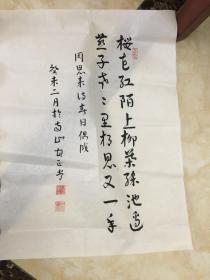 桜花红陌上柳葉绿池边
燕子声々里相思又一年
周恩来诗春日偶成
癸未二月於